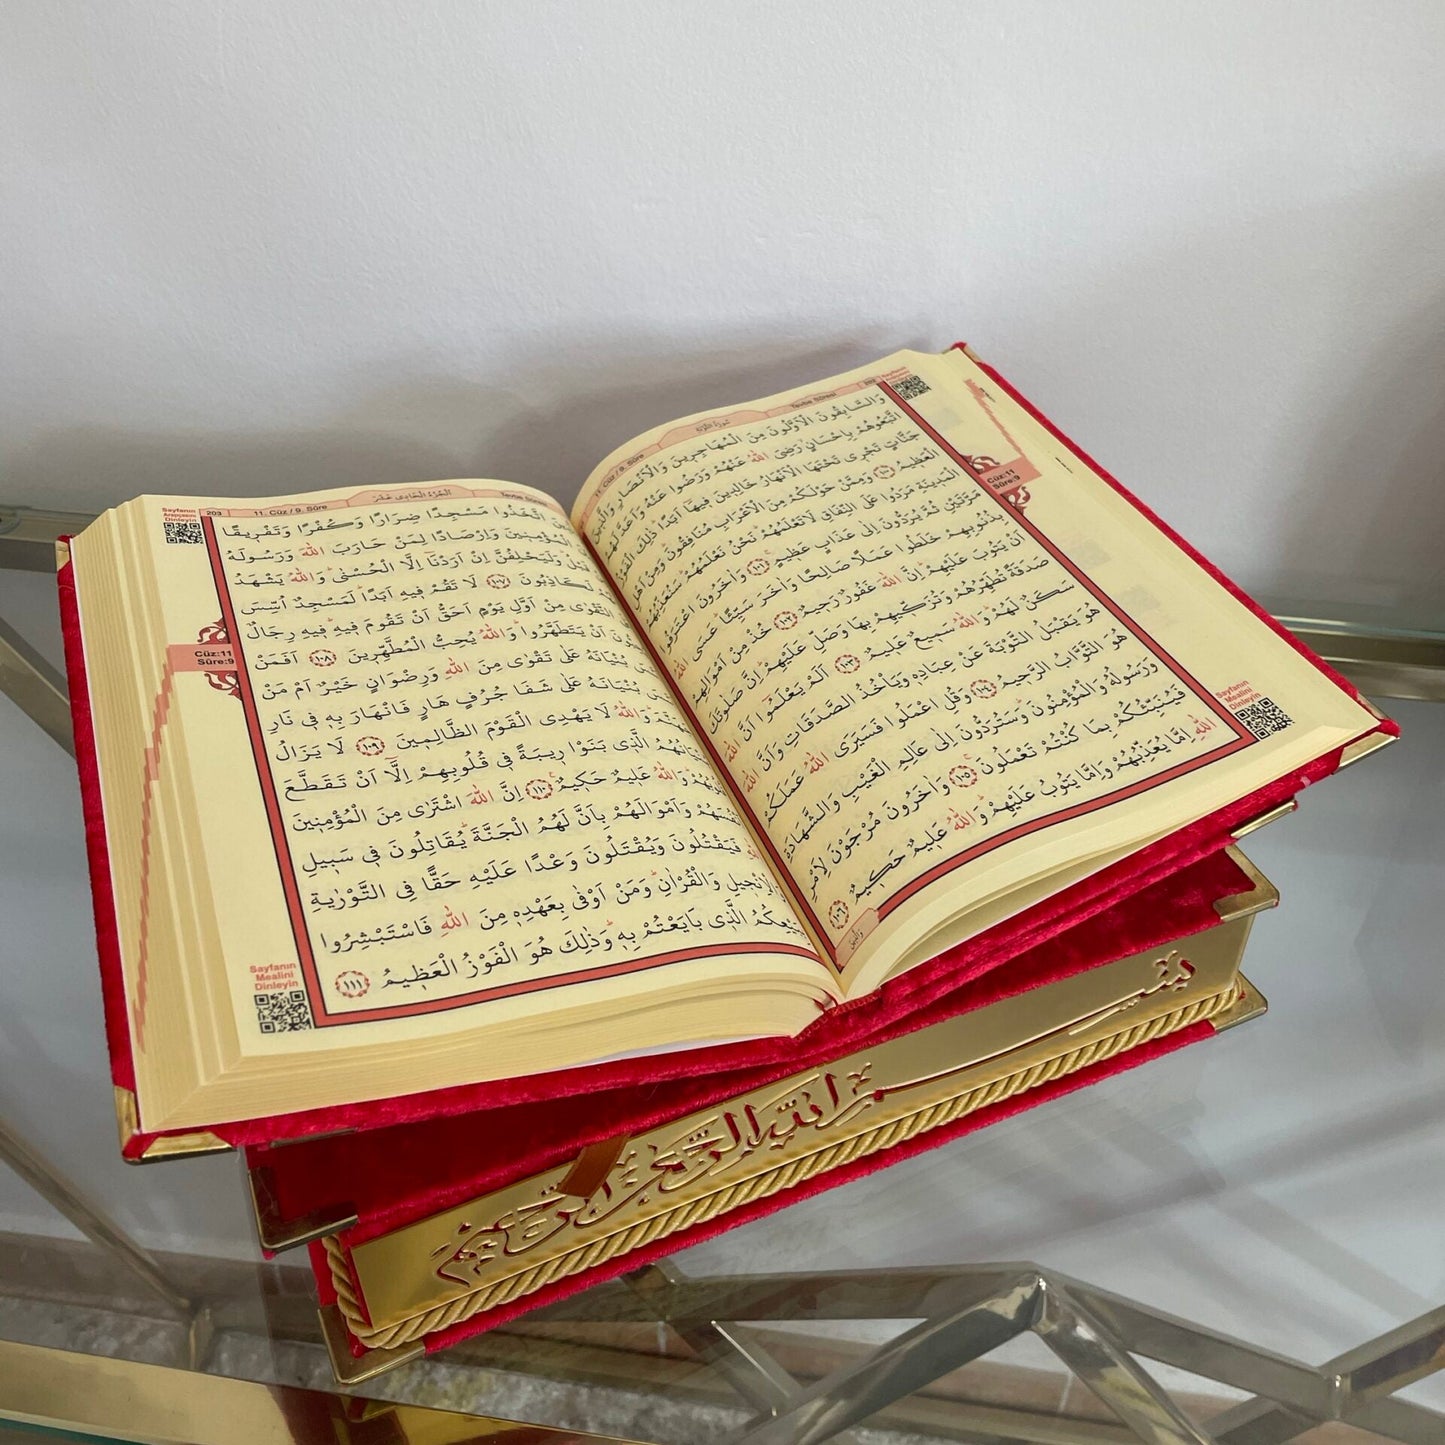 Tevbe Sûresi
سُورَةُ التَّوْبَةِ
11. Cüz / 9. Sûre
وَالسَّابِقُونَ الْاَوَّلُونَ مِنَ الْمُهَاجِرِينَ وَالْاَنْصَارِ وَالَّذِينَ
اتَّبَعُوهُمْ بِاِحْسَانٍ رَضِيَ اللّٰهُ عَنْهُمْ وَرَضُوا عَنْهُ وَاَعَدَّ لَهُمْ
جَنَّاتٍ تَجْرِي تَحْتَهَا الْاَنْهَارُ خَالِدِينَ فِيهَا اَبَدًا ذٰلِكَ الْفَوْزُ
الْعَظِيمُ ١٠٠ وَمِمَّنْ حَوْلَكُمْ مِنَ الْاَعْرَابِ مُنَافِقُونَ وَمِنْ اَهْلِ
الْمَدِينَةِ مَرَدُوا عَلَى النِّفَاقِ لَا تَعْلَمُهُمْ نَحْنُ نَعْلَمُهُمْ سَنُعَذِّبُهُمْ
مَرَّتَيْنِ ثُمَّ يُرَدُّونَ اِلٰى عَذَابٍ عَظِيمٍ ١٠١ وَاٰخَرُونَ اعْتَرَفُوا
بِذُنُوبِهِمْ خَلَطُوا عَمَلًا صَالِحًا وَاٰخَرَ سَيِّئًا عَسَى اللّٰهُ
اَنْ يَتُوبَ عَلَيْهِمْ اِنَّ اللّٰهَ غَفُورٌ رَحِيمٌ ١٠٢ خُذْ مِنْ اَمْوَالِهِمْ
صَدَقَةً تُطَهِّرُهُمْ وَتُزَكِّيهِمْ بِهَا وَصَلِّ عَلَيْهِمْ اِنَّ صَلٰوتَكَ
سَكَنٌ لَهُمْ وَاللّٰهُ سَمِيعٌ عَلِيمٌ ١٠٣ اَلَمْ يَعْلَمُوا اَنَّ اللّٰهَ
هُوَ يَقْبَلُ التَّوْبَةَ عَنْ عِبَادِهِ وَيَأْخُذُ الصَّدَقَاتِ وَاَنَّ اللّٰهَ
هُوَ التَّوَّابُ الرَّحِيمُ ١٠٤ وَقُلِ اعْمَلُوا فَسَيَرَى اللّٰهُ عَمَلَكُمْ
وَرَسُولُهُ وَالْمُؤْمِنُونَ وَسَتُرَدُّونَ اِلٰى عَالِمِ الْغَيْبِ وَالشَّهَادَةِ
فَيُنَبِّئُكُمْ بِمَا كُنْتُمْ تَعْمَلُونَ ١٠٥ وَاٰخَرُونَ مُرْجَوْنَ لِاَمْرِ
اللّٰهِ اِمَّا يُعَذِّبُهُمْ وَاِمَّا يَتُوبُ عَلَيْهِمْ وَاللّٰهُ عَلِيمٌ حَكِيمٌ ١٠٦
Cüz:11
Sûre:9
Sayfanın
Mealini
Dinleyin
Tevbe Sûresi
اَلْجُزْءُ الْحَادِى عَشَرَ
11. Cüz / 9. Sûre
203
Sayfanın
Arapçasını
Dinleyin
اتَّخَذُوا مَسْجِدًا ضِرَارًا وَكُفْرًا وَتَفْرِيقًا
الْمُؤْمِنِينَ وَاِرْصَادًا لِمَنْ حَارَبَ اللّٰهَ وَرَسُولَهُ
قَبْلُ وَلَيَحْلِفُنَّ اِنْ اَرَدْنَا اِلَّا الْحُسْنٰى وَاللّٰهُ يَشْهَدُ
لَكَاذِبُونَ ١٠٧ لَا تَقُمْ فِيهِ اَبَدًا لَمَسْجِدٌ اُسِّسَ
التَّقْوٰى مِنْ اَوَّلِ يَوْمٍ اَحَقُّ اَنْ تَقُومَ فِيهِ فِيهِ رِجَالٌ
اَنْ يَتَطَهَّرُوا وَاللّٰهُ يُحِبُّ الْمُطَّهِّرِينَ ١٠٨ اَفَمَنْ
بُنْيَانَهُ عَلٰى تَقْوٰى مِنَ اللّٰهِ وَرِضْوَانٍ خَيْرٌ اَمْ مَنْ
بُنْيَانَهُ عَلٰى شَفَا جُرُفٍ هَارٍ فَانْهَارَ بِهِ فِي نَارِ
وَاللّٰهُ لَا يَهْدِي الْقَوْمَ الظَّالِمِينَ ١٠٩ لَا يَزَالُ
الَّذِي بَنَوْا رِيبَةً فِي قُلُوبِهِمْ اِلَّا اَنْ تَقَطَّعَ
وَاللّٰهُ عَلِيمٌ حَكِيمٌ ١١٠ اِنَّ اللّٰهَ اشْتَرٰى مِنَ الْمُؤْمِنِينَ
وَاَمْوَالَهُمْ بِاَنَّ لَهُمُ الْجَنَّةَ يُقَاتِلُونَ فِي سَبِيلِ
فَيَقْتُلُونَ وَيُقْتَلُونَ وَعْدًا عَلَيْهِ حَقًّا فِي التَّوْرٰيةِ
وَالْقُرْاٰنِ وَمَنْ اَوْفٰى بِعَهْدِهِ مِنَ اللّٰهِ فَاسْتَبْشِرُوا
الَّذِي بَايَعْتُمْ بِهِ وَذٰلِكَ هُوَ الْفَوْزُ الْعَظِيمُ ١١١
Cüz:11
Sûre:9
Sayfanın
Mealini
Dinleyin
بسم الله الرحمن الرحيم